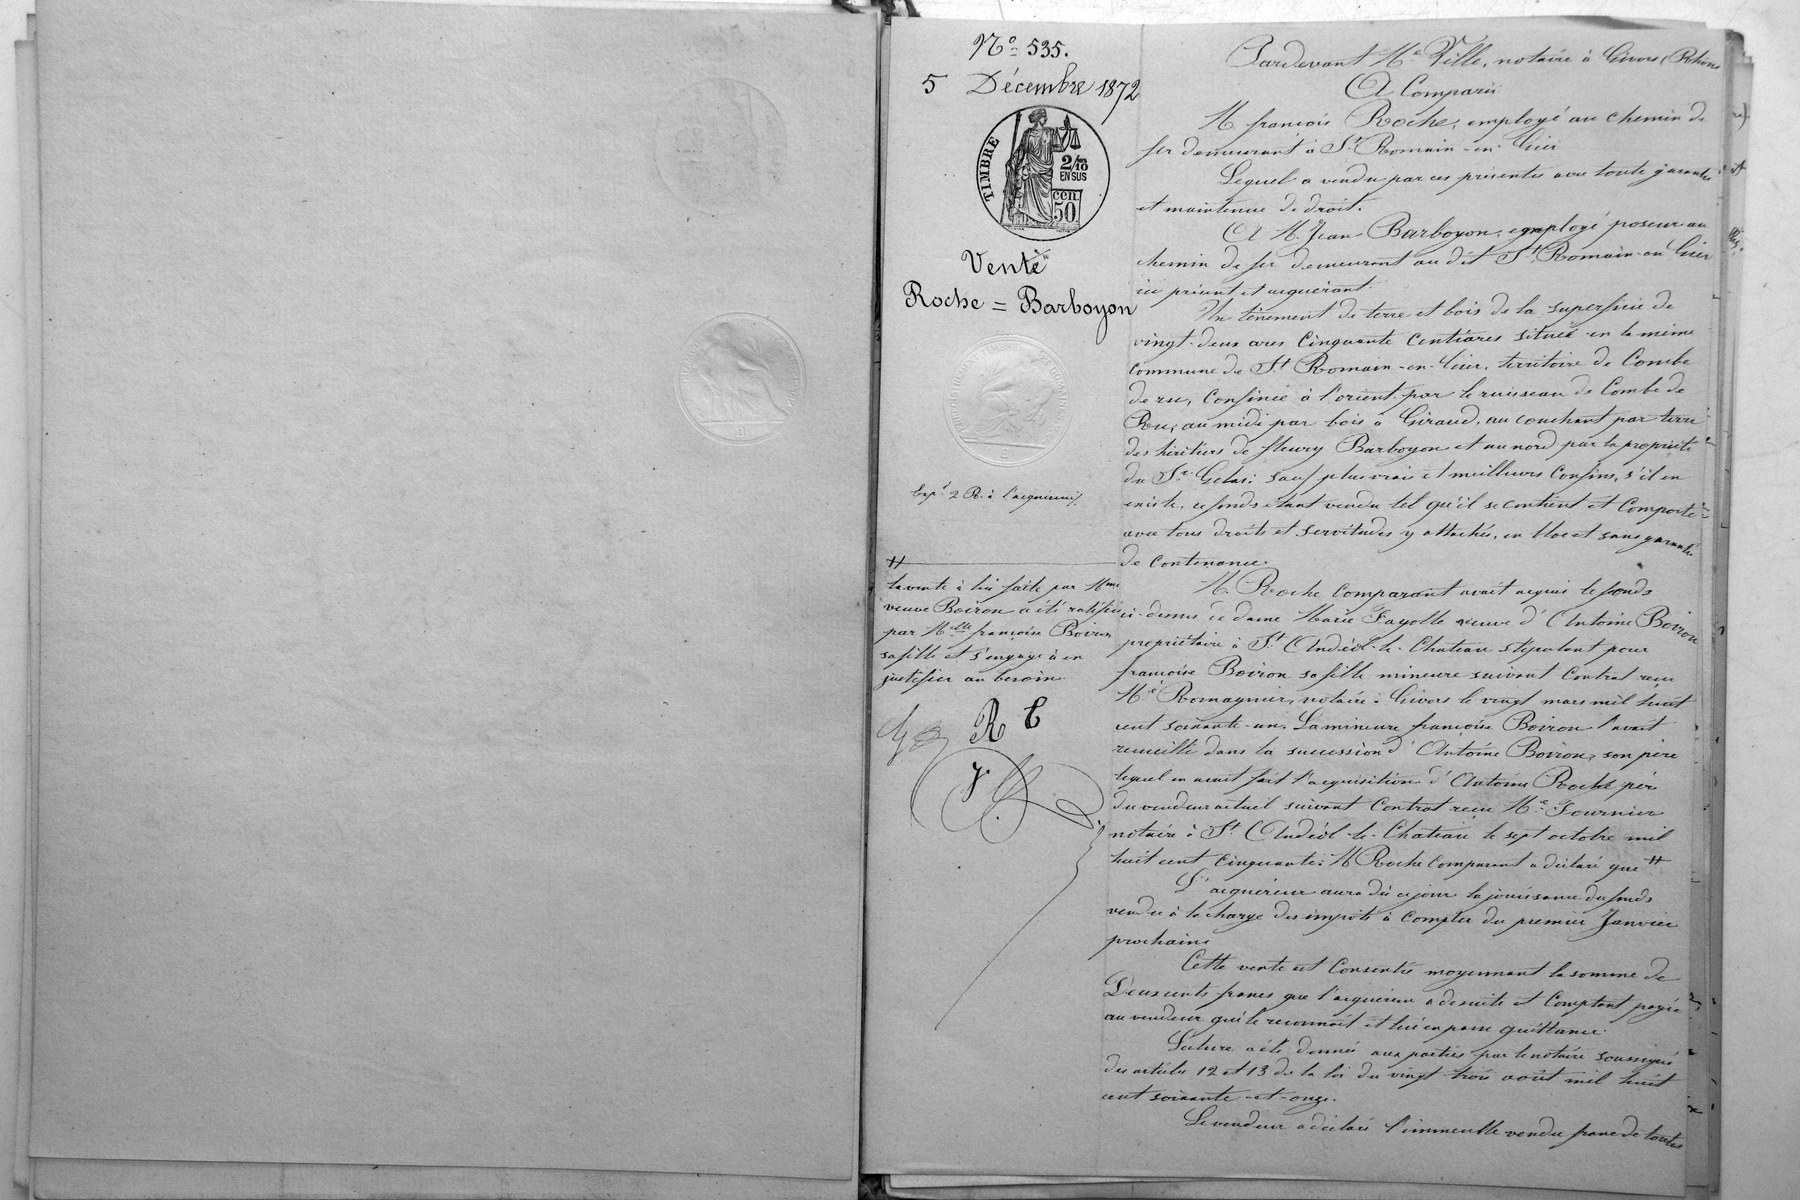 N° 535.
5 Décembre 1872
TIMBRE
2/10
EN SUS
cen.
50.
Vente
Roche = Barboyon
Expé 2 R. à l'acquéreur
#
la vente à lui faite par Mme
veuve Boiron a été ratifiée
par Mlle françoise Boiron
sa fille et s'engage à en
justifier au besoin
R C
Pardevant Me Ville, notaire à Givors (Rhône
A Comparu
M. françois Roche, employé au chemin de
fer demeurant à St Romain-en-Gier
Lequel a vendu par ces présentes avec toute garantie
et maintenue de droit.
A M. Jean Barboyon, employé poseur au
chemin de fer demeurant au dit St Romain-en-Gier
ici présent et acquérant.
Un tènement de terre et bois de la superficie de
vingt-deux ares cinquante centiares situé en la même
commune de St Romain-en-Gier, territoire de Combe
de ru, Confinée à l'orient par le ruisseau de Combe de
Rou, au midi par bois à Giraud, au couchant par terre
des héritiers de fleury Barboyon et au nord par la propriété
du Sr Gelas; sauf plus vrais et meilleurs Confins, s'il en
existe, ce fonds étant vendu tel qu'il se contient et Comporte
avec tous droits et servitudes y attachés, en bloc et sans garantie
de contenance.
M. Roche Comparant avait acquis le fonds
ci-dessus de dame Marie Fayolle veuve d'Antoine Boiron
propriétaire à St Andéol-le-Chateau stipulant pour
françoise Boiron sa fille mineure suivant Contrat reçu
Me Romagnier, notaire à Givors le vingt mars mil huit
cent soixante-un. La mineure françoise Boiron l'avait
recueilli dans la succession d'Antoine Boiron, son père
lequel en avait fait l'acquisition d'Antoine Roche père
du vendeur actuel suivant Contrat reçu Me Fournier
notaire à St Andéol-le-Chateau le sept octobre mil
huit cent cinquante. M Roche comparant a déclaré que #
L'acquéreur aura dès ce jour la jouissance du fonds
vendu à la charge des impôts à compter du premier Janvier
prochain.
Cette vente est Consentie moyennant la somme de
Deux cents francs que l'acquéreur a de suite et Comptant payée
au vendeur qui le reconnait et lui en passe quittance.
Lecture a été donnée aux parties par le notaire soussigné
des articles 12 et 13 de la loi du vingt-trois août mil huit
cent soixante-et-onze.
Le vendeur a déclaré l'immeuble vendu franc de toutes